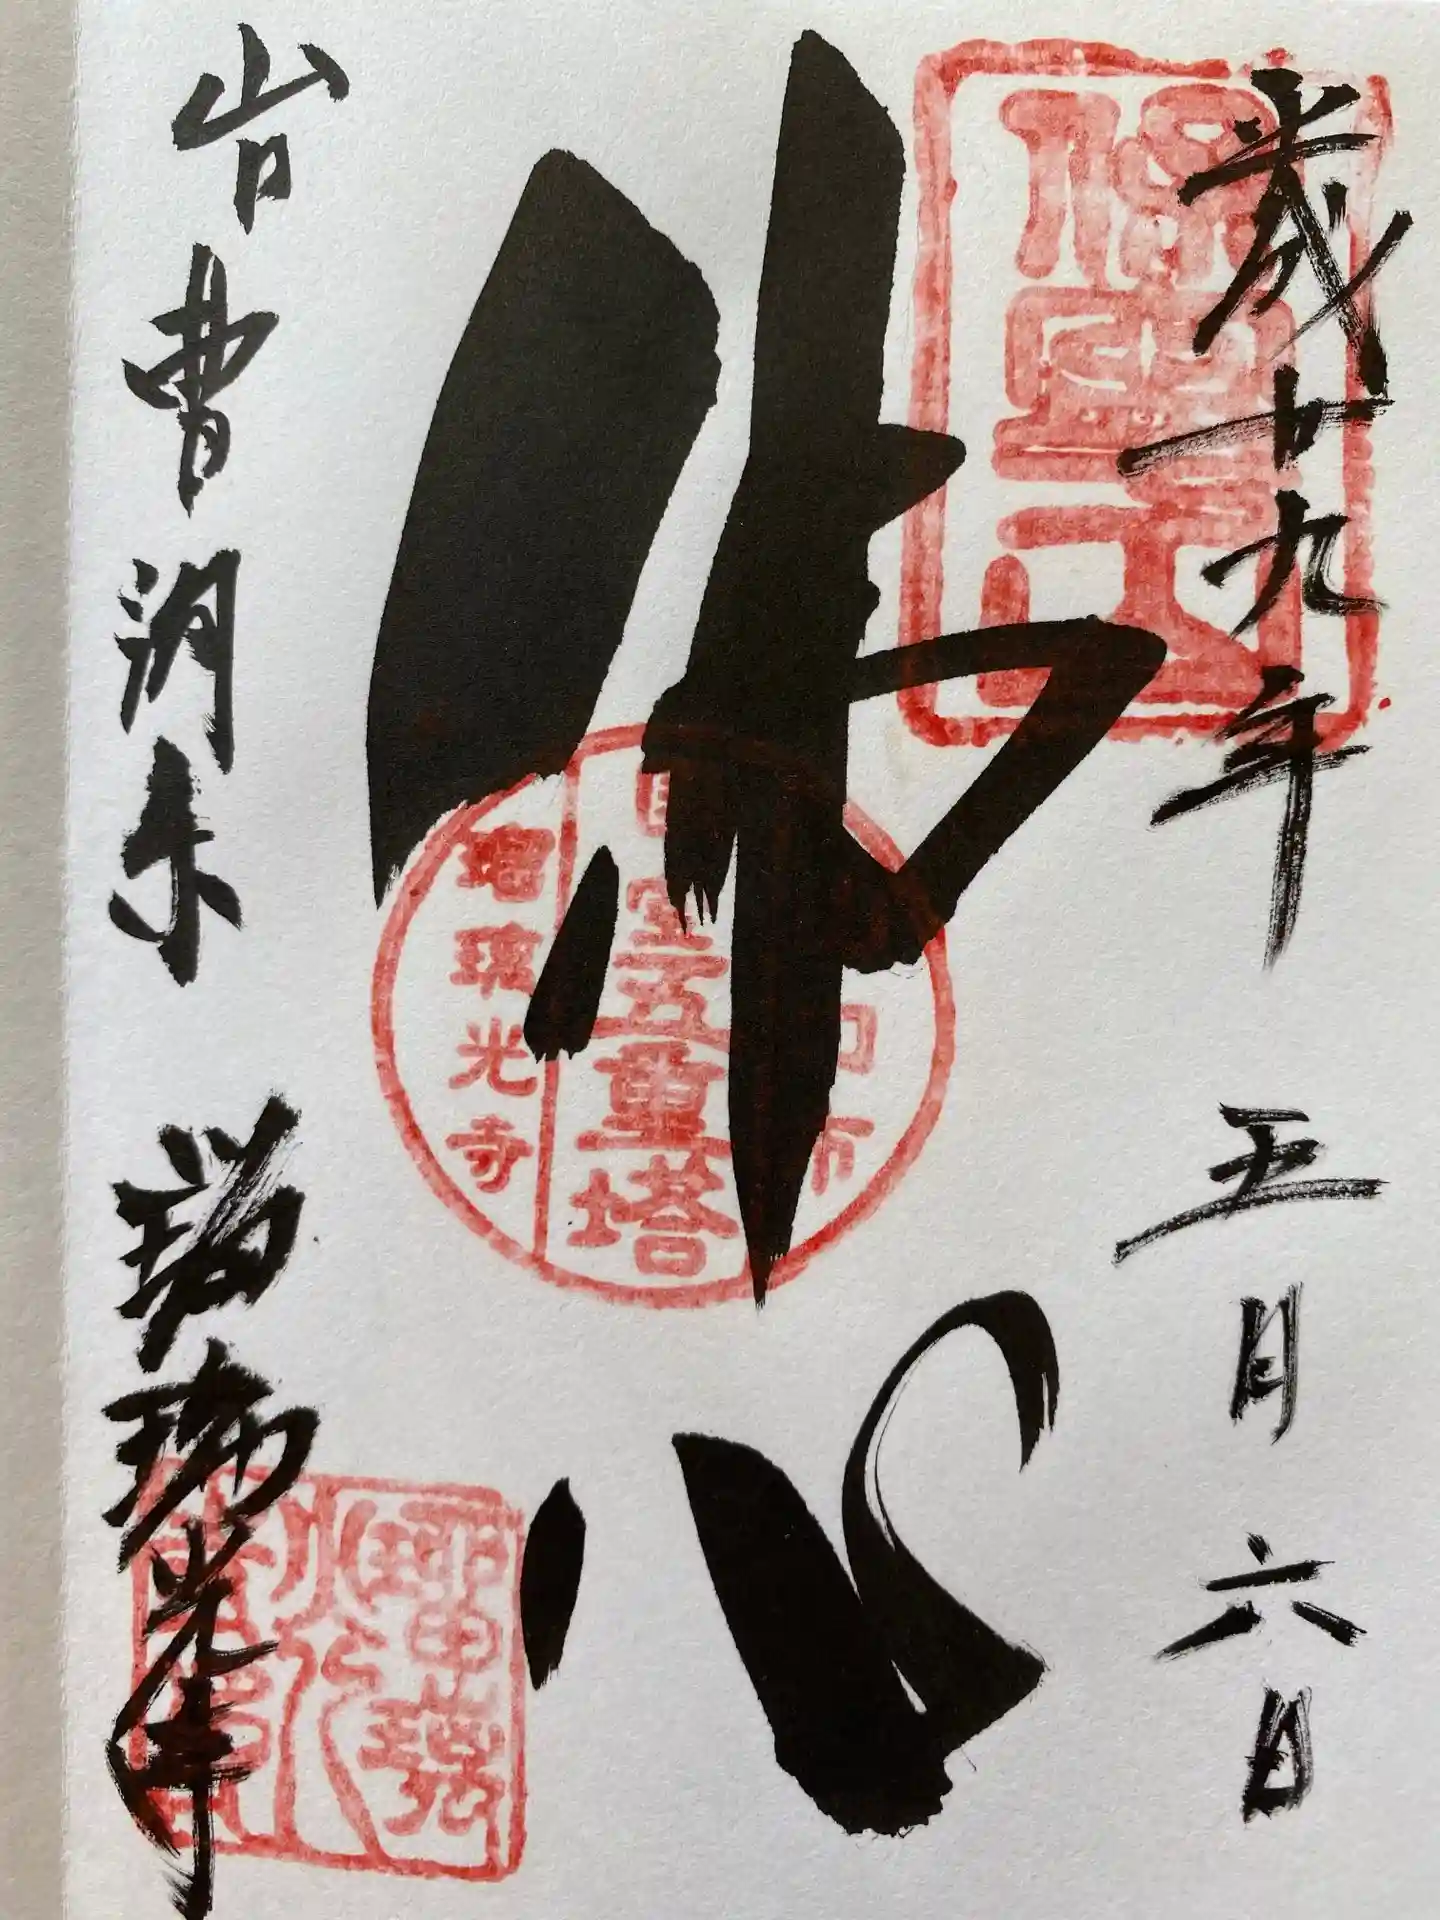 平成廿九年 五月六日
保寧山
佛心
山口市
国宝五重塔
瑠璃光寺
山口曹洞宗 瑠璃光寺